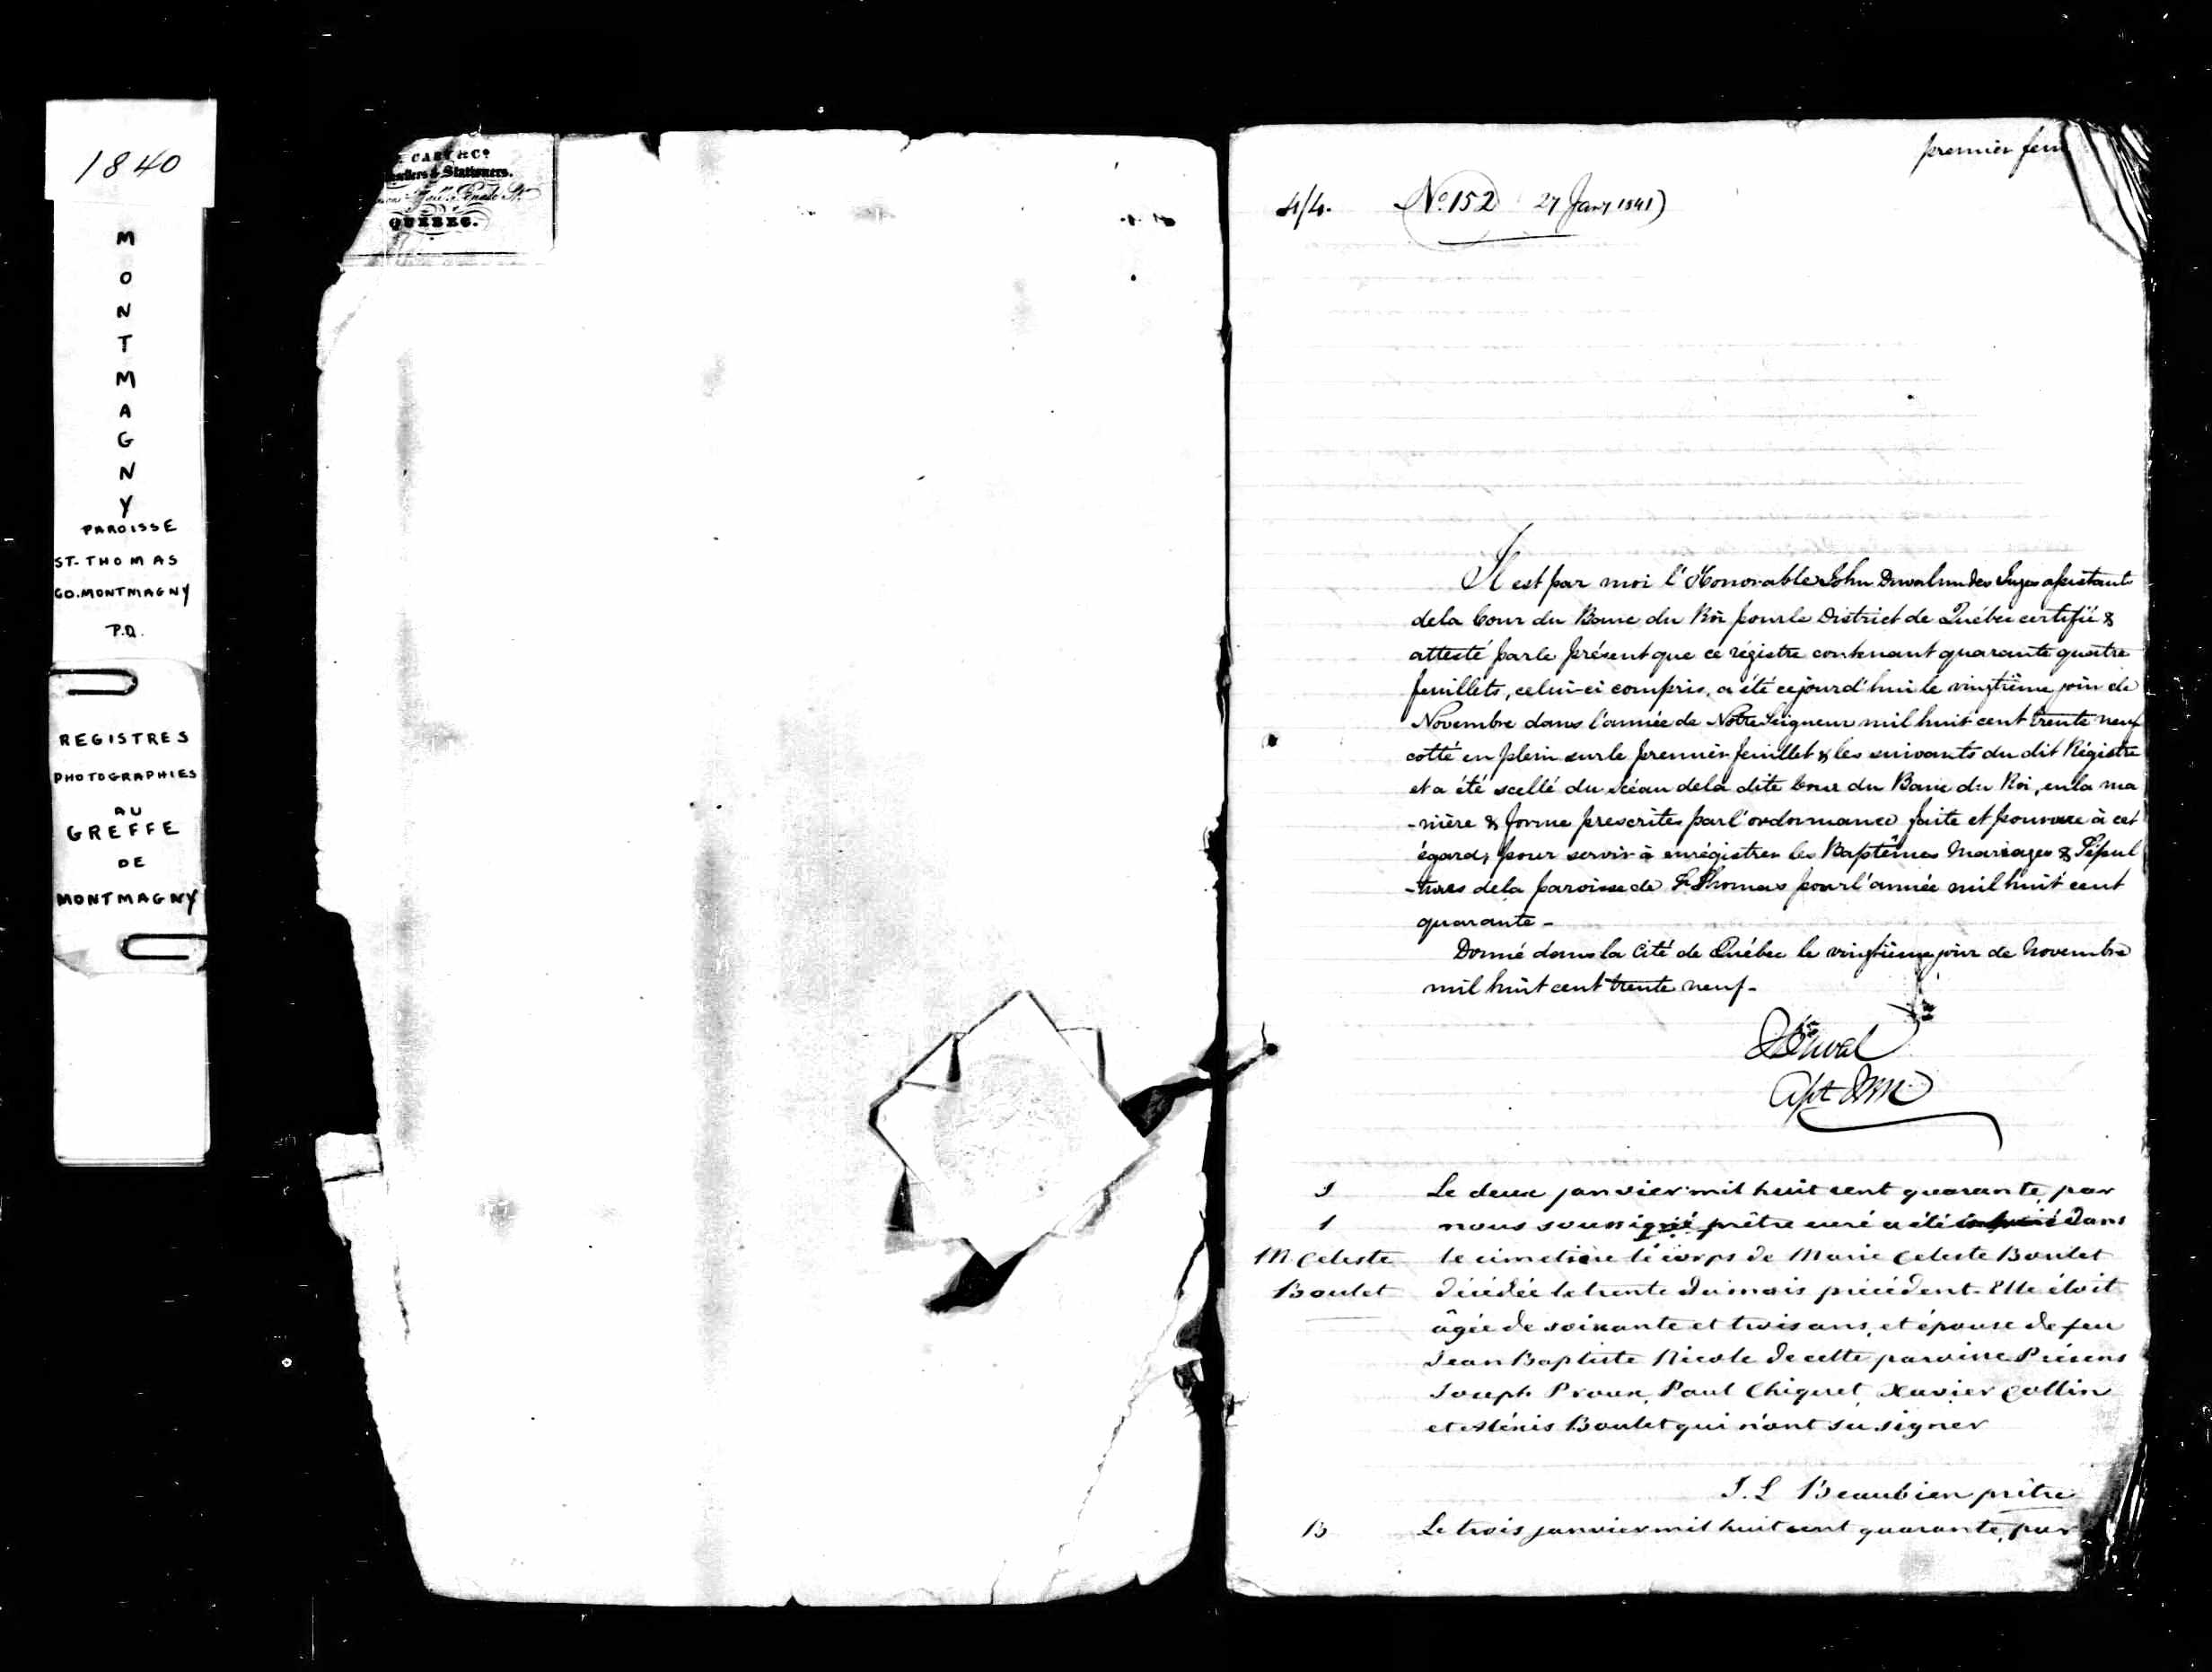 1840
MONTMAGNY
PAROISSE
ST-THOMAS
CO. MONTMAGNY
P.Q.
REGISTRES
PHOTOGRAPHIES
AU
GREFFE
DE
MONTMAGNY
CARY & Co
& Stationers.
QUEBEC.
premier feui
4/4. No. 152 27 Jany 1841)
Il est par moi l'Honorable John Duval un des Juges assistants
de la Cour du Banc du Roi pour le District de Québec certifié &
attesté par le présent que ce régistre contenant quarante quatre
feuillets, celui-ci compris, a été cejourd'hui le vingtième jour de
Novembre dans l'année de Notre Seigneur mil huit cent trente neuf
cotté en plein sur le premier feuillet & les suivants du dit Régistre
et a été scellé du scéau de la dite Cour du Banc du Roi, en la ma
-nière & forme prescrites par l'ordonnance faite et pourvue à cet
égard, pour servir à enrégistrer les Baptêmes Mariages & Sépul
-tures de la paroisse de St Thomas pour l'année mil huit cent
quarante -
Donné dans la Cité de Québec le vingtième jour de Novembre
mil huit cent trente neuf -
Duval
S Le deux janvier mil huit cent quarante, par
1 nous soussigné prêtre curé a été inhumé dans
M. Celeste le cimetière le corps de Marie Celeste Boulet
Boulet décédée le trente du mois précédent. Elle étoit
âgée de soixante et trois ans, et épouse de feu
Jean Baptiste Nicole de cette paroisse Présens
Joseph Proux, Paul Chiguet, Xavier Collin
et Alexis Boulet qui n'ont su signer
J. L Beaubien prêtre
B Le trois janvier mil huit cent quarante, par